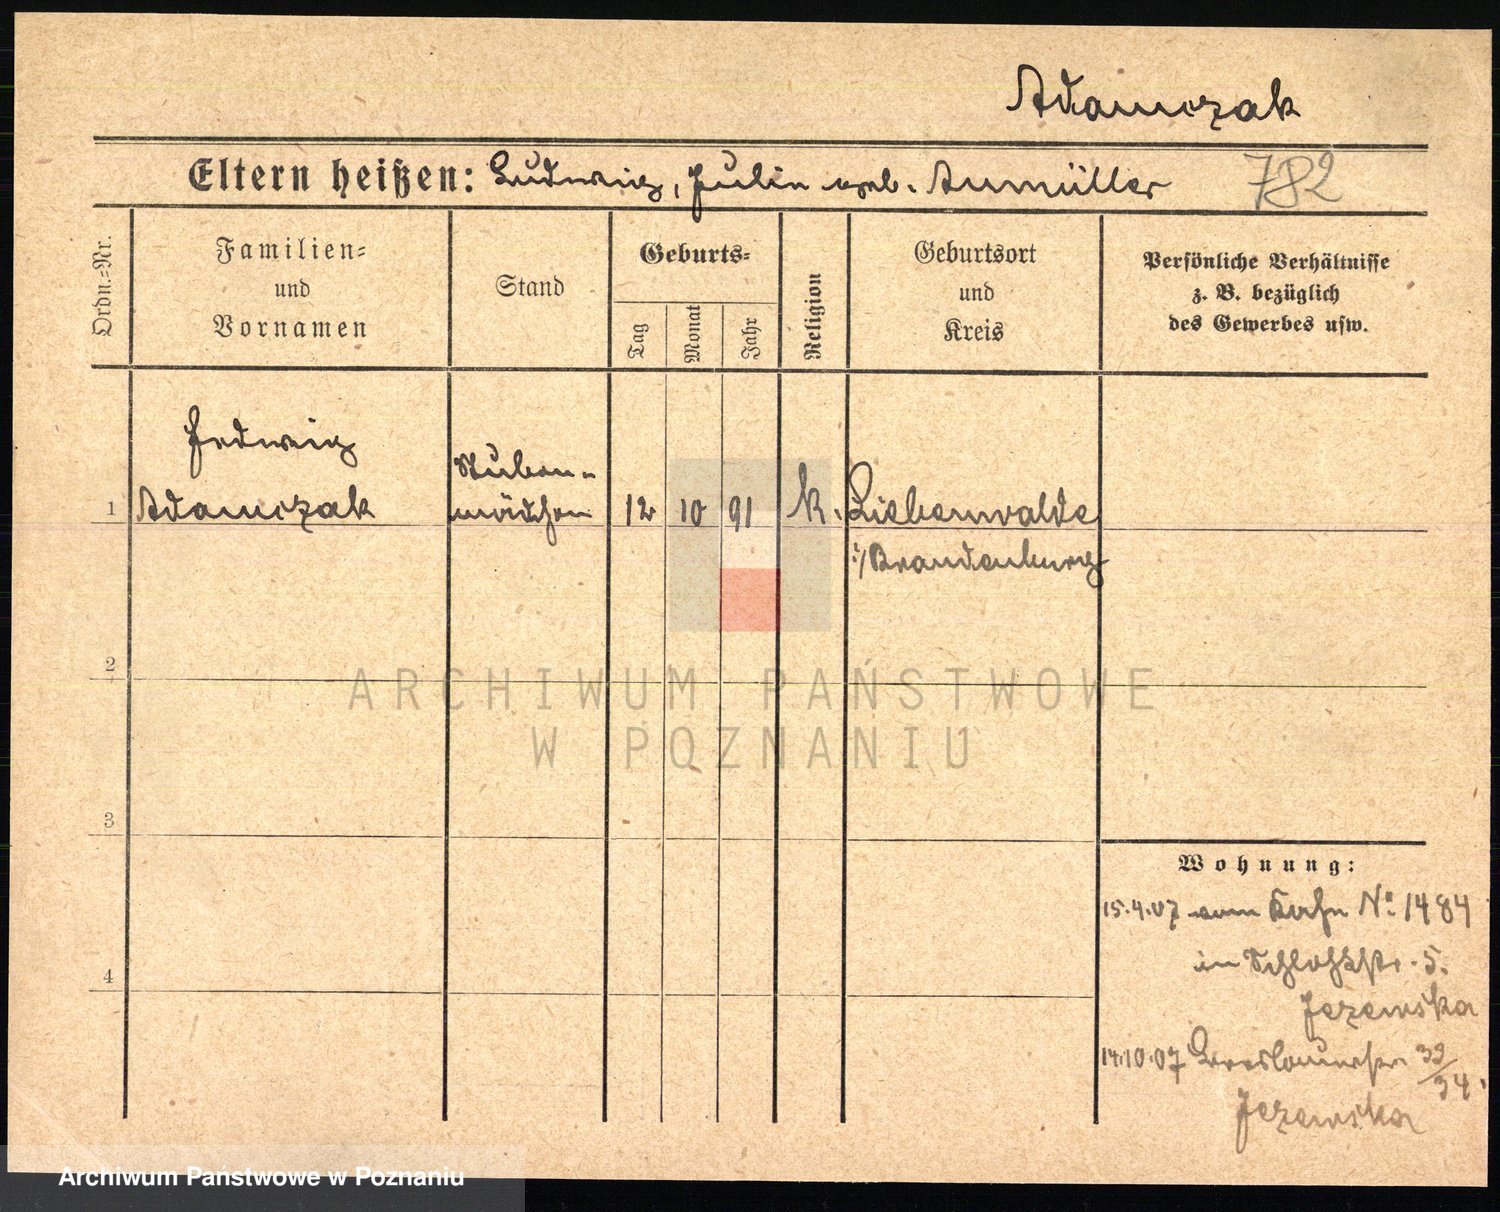 Adamczak
Eltern heißen: Ludwig, Julie geb. Aumüller 782
Ordn.-Nr.
Familien-
und
Vornamen
Stand
Geburts-
Tag
Monat
Jahr
Religion
Geburtsort
und
Kreis
Persönliche Verhältnisse
z. B. bezüglich
des Gewerbes usw.
Hedwig
1 Adamczak
Stuben-
mädchen
12 10 91 k. Liebenwalde
i/Brandenburg
2
3
4
ARCHIWUM PAŃSTWOWE
W POZNANIU
Wohnung:
15.4.07 vom No. 1484
in Schloßstr. 5.
Jezewska
14.10.07 Breslauerstr 32/34.
Jezewska
Archiwum Państwowe w Poznaniu